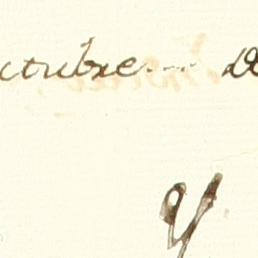 ctubre... de
y